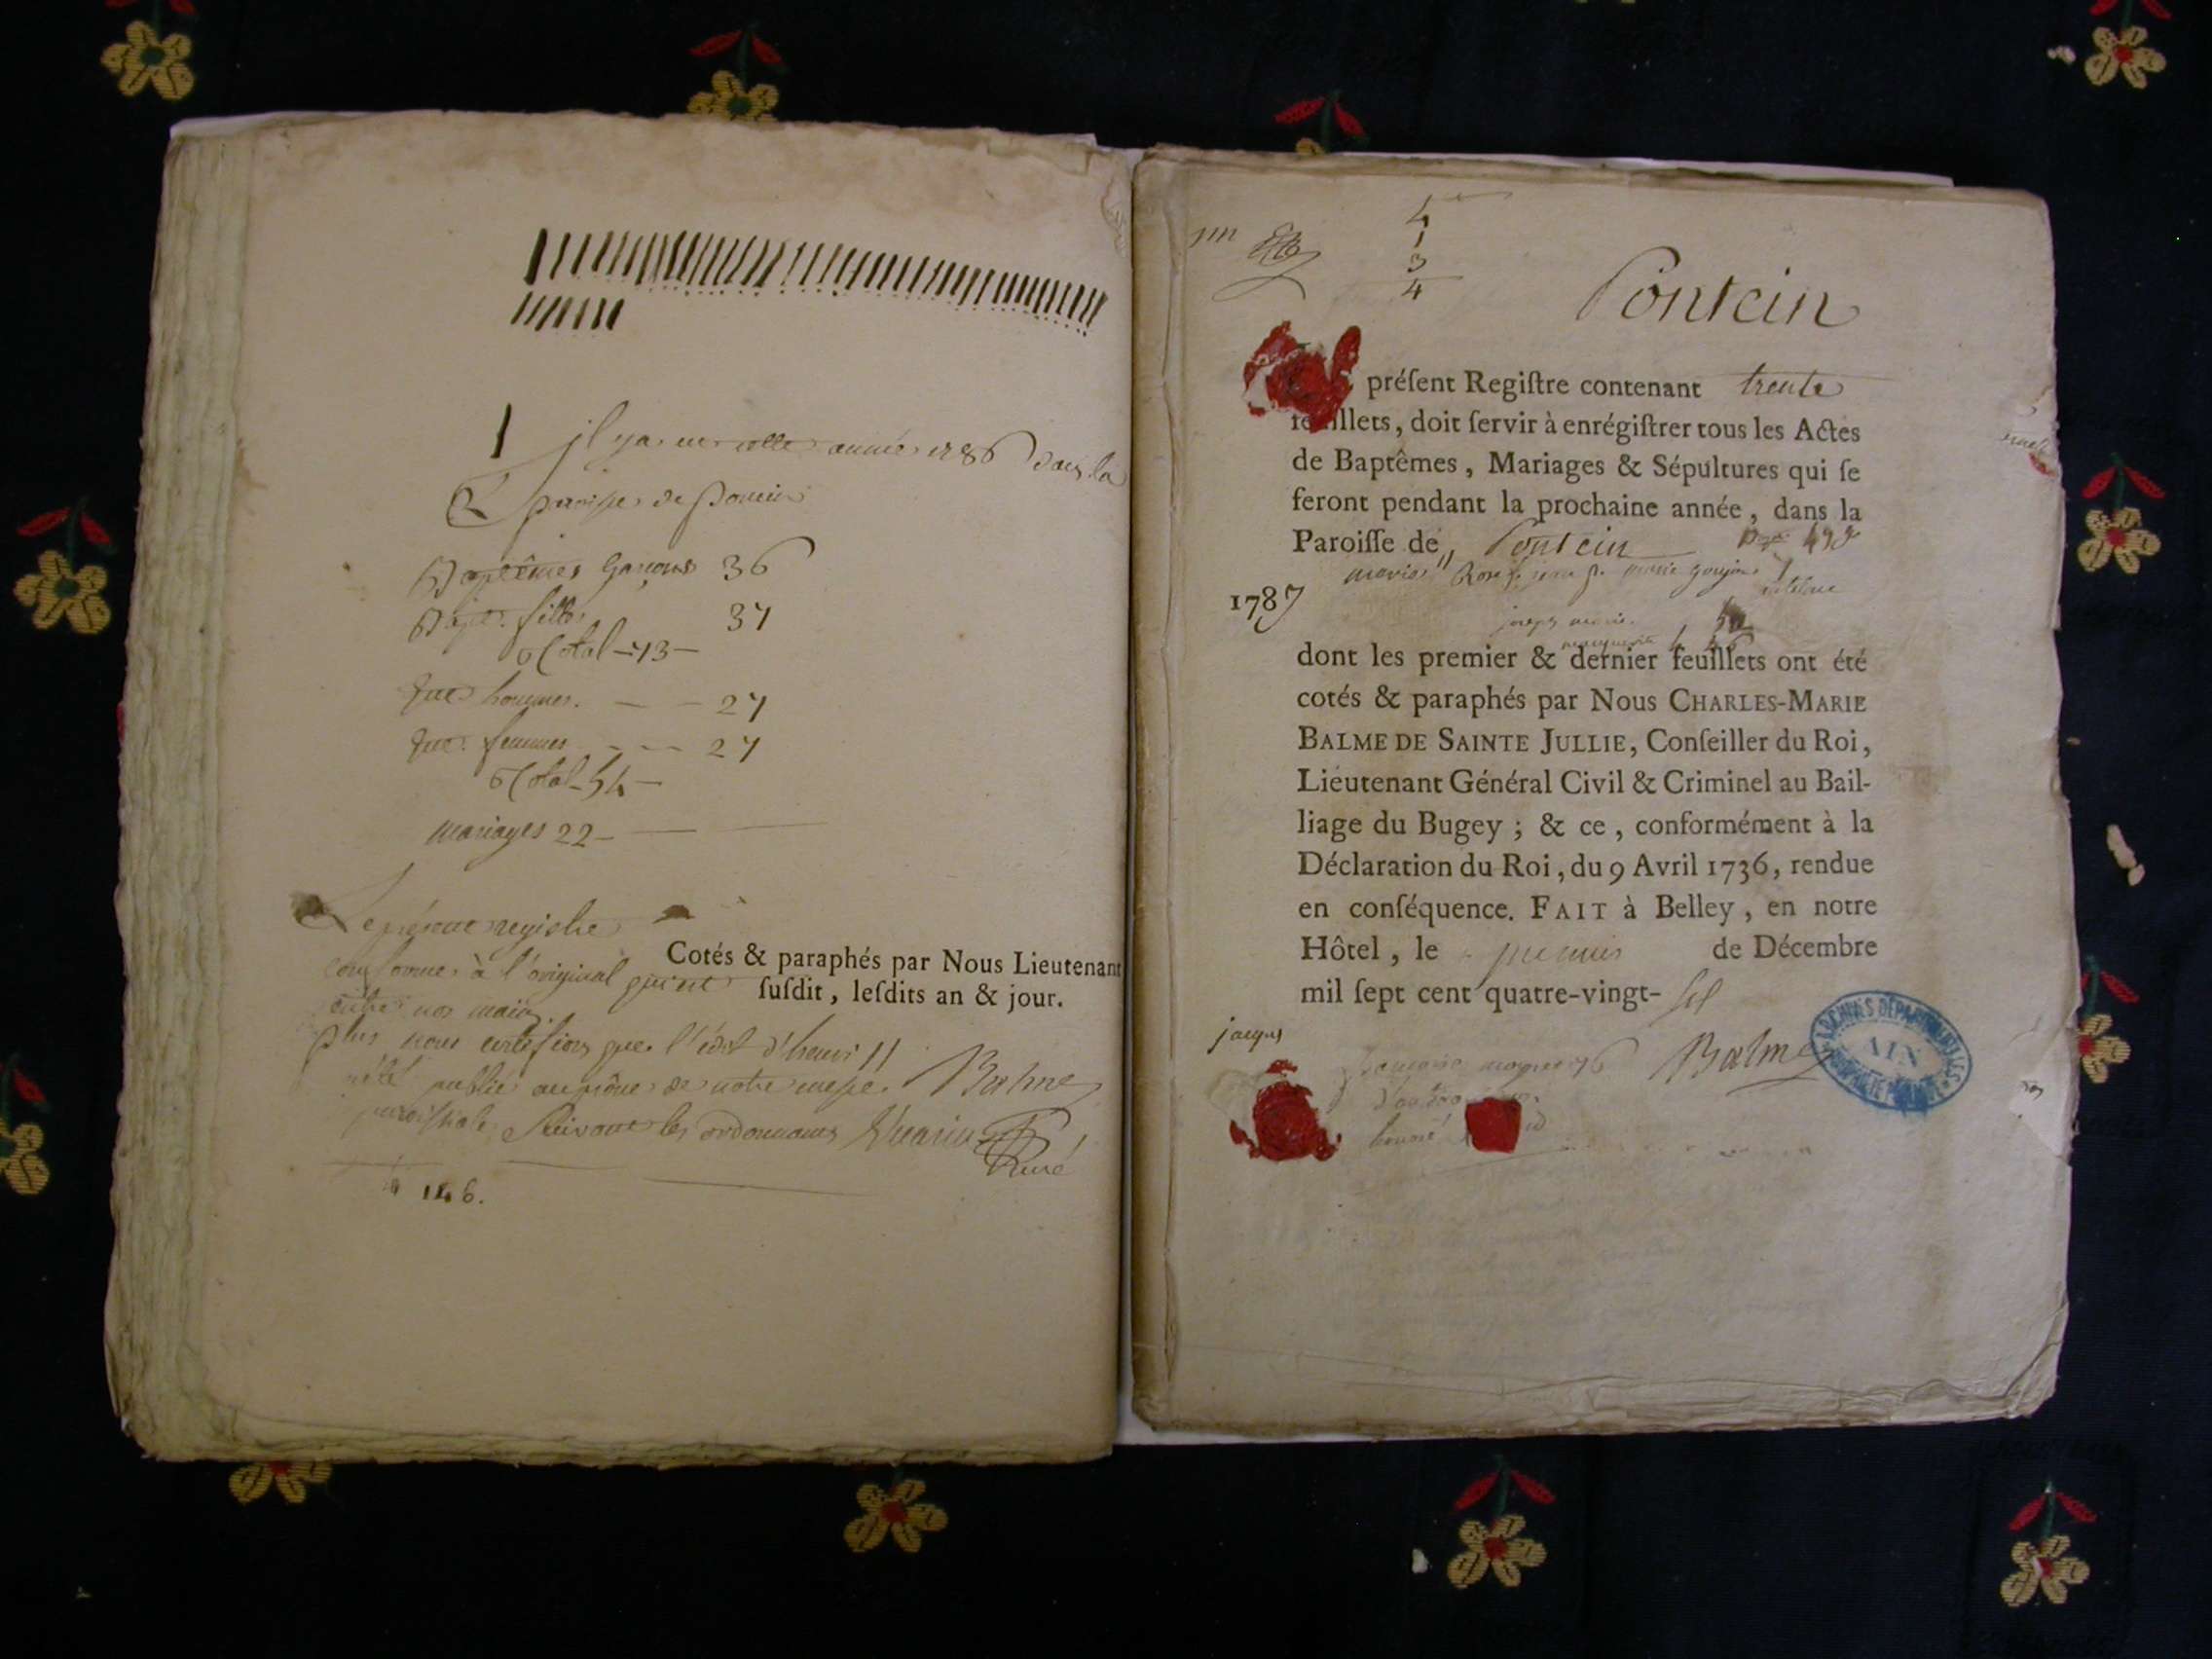 il y a eu cette année 1786 dans la
paroisse de Poncin
Baptêmes garçons 36
Bapt. filles 37
Total - 73 -
hommes. - - 27
femmes - - - 27
Total - 54 -
mariages 22 -
Le présent registre
conforme à l'original qui est
entre nos mains.
plus nous certifions que l'édit d'henri II
a été publié au prône de notre messe
paroissiale suivant les ordonnances
curé
146.
Cotés & paraphés par Nous Lieutenant
ſuſdit, leſdits an & jour.
Balme
4
1
3
4
Pontcin
préſent Regiſtre contenant trente
feuillets, doit ſervir à enrégiſtrer tous les Actes
de Baptêmes, Mariages & Sépultures qui ſe
feront pendant la prochaine année, dans la
Paroiſſe de Pontcin
1787
dont les premier & dernier feuillets ont été
cotés & paraphés par Nous CHARLES-MARIE
BALME DE SAINTE JULLIE, Conſeiller du Roi,
Lieutenant Général Civil & Criminel au Bail-
liage du Bugey ; & ce, conformément à la
Déclaration du Roi, du 9 Avril 1736, rendue
en conſéquence. FAIT à Belley, en notre
Hôtel, le premier de Décembre
mil ſept cent quatre-vingt- six
jacques
Balme
ARCHIVES DÉPARTEMENTALES
AIN